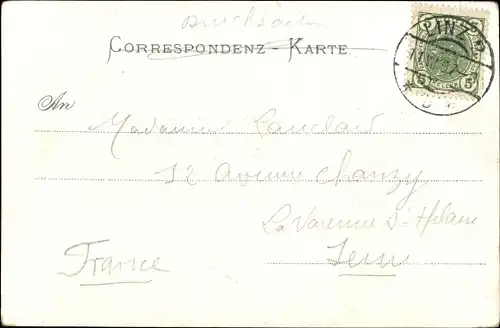 Drucksache
CORRESPONDENZ - KARTE
LINZ
5 5
An
Madame Lauclair
12 Avenue Chanzy
La Varenne St Hilaire
Seine
France